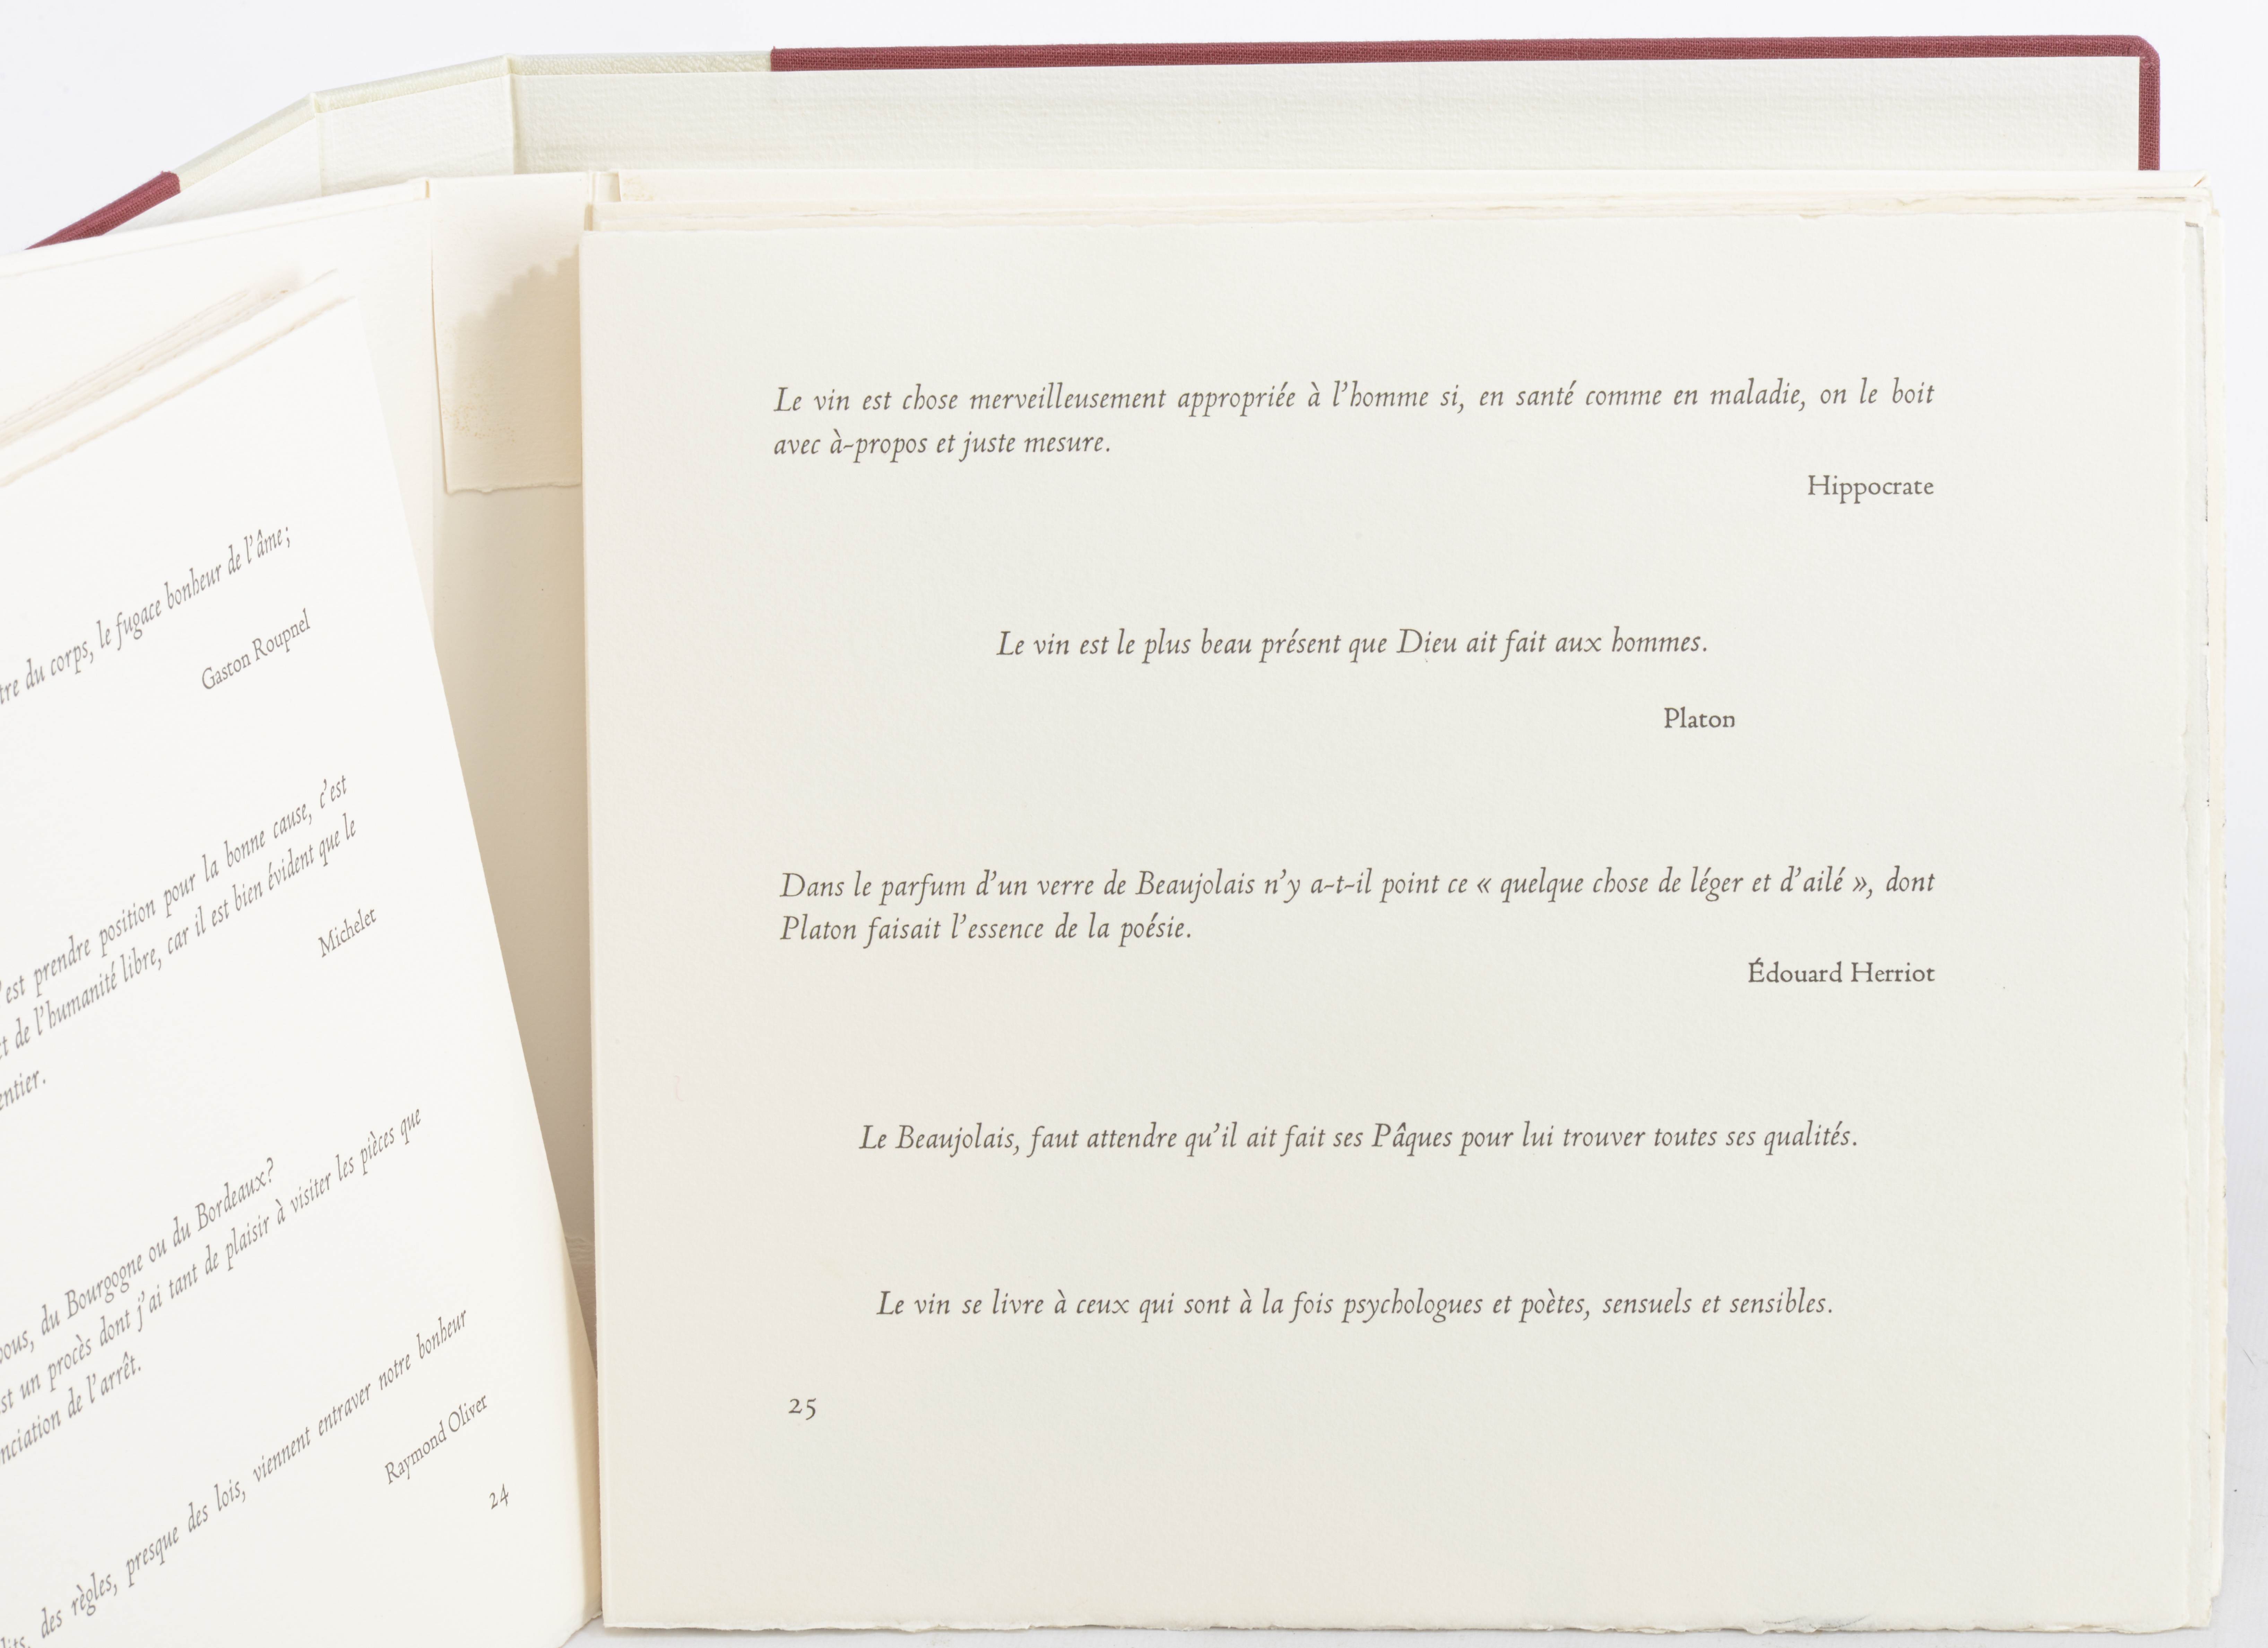 du corps, le fugace bonheur de l'âme;
Gaston Roupnel
est prendre position pour la bonne cause, c'est
de l'humanité libre, car il est bien évident que le
Michelet
du Bourgogne ou du Bordeaux?
un procès dont j'ai tant de plaisir à visiter les pièces que
de l'arrêt.
des règles, presque des lois, viennent entraver notre bonheur
Raymond Oliver
24
Le vin est chose merveilleusement appropriée à l'homme si, en santé comme en maladie, on le boit
avec à-propos et juste mesure.
Hippocrate
Le vin est le plus beau présent que Dieu ait fait aux hommes.
Platon
Dans le parfum d'un verre de Beaujolais n'y a-t-il point ce « quelque chose de léger et d'ailé », dont
Platon faisait l'essence de la poésie.
Édouard Herriot
Le Beaujolais, faut attendre qu'il ait fait ses Pâques pour lui trouver toutes ses qualités.
Le vin se livre à ceux qui sont à la fois psychologues et poètes, sensuels et sensibles.
25